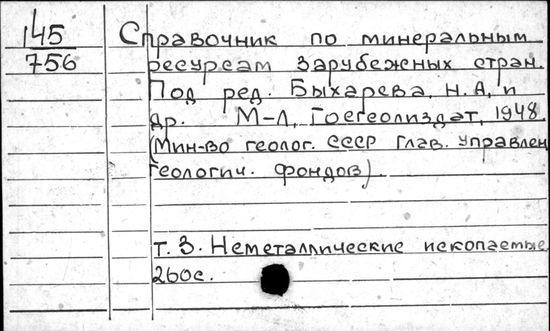 145
756
Справочник по минеральным
ресурсам зарубежных стран.
Под ред. Быхарева, Н.А, и
др. М-Л, Госгеолиздат, 1948.
(Мин-во геолог. СССР Глав. управлен
геологич. фондов)
т. 3. Неметаллические ископаемые
260с.